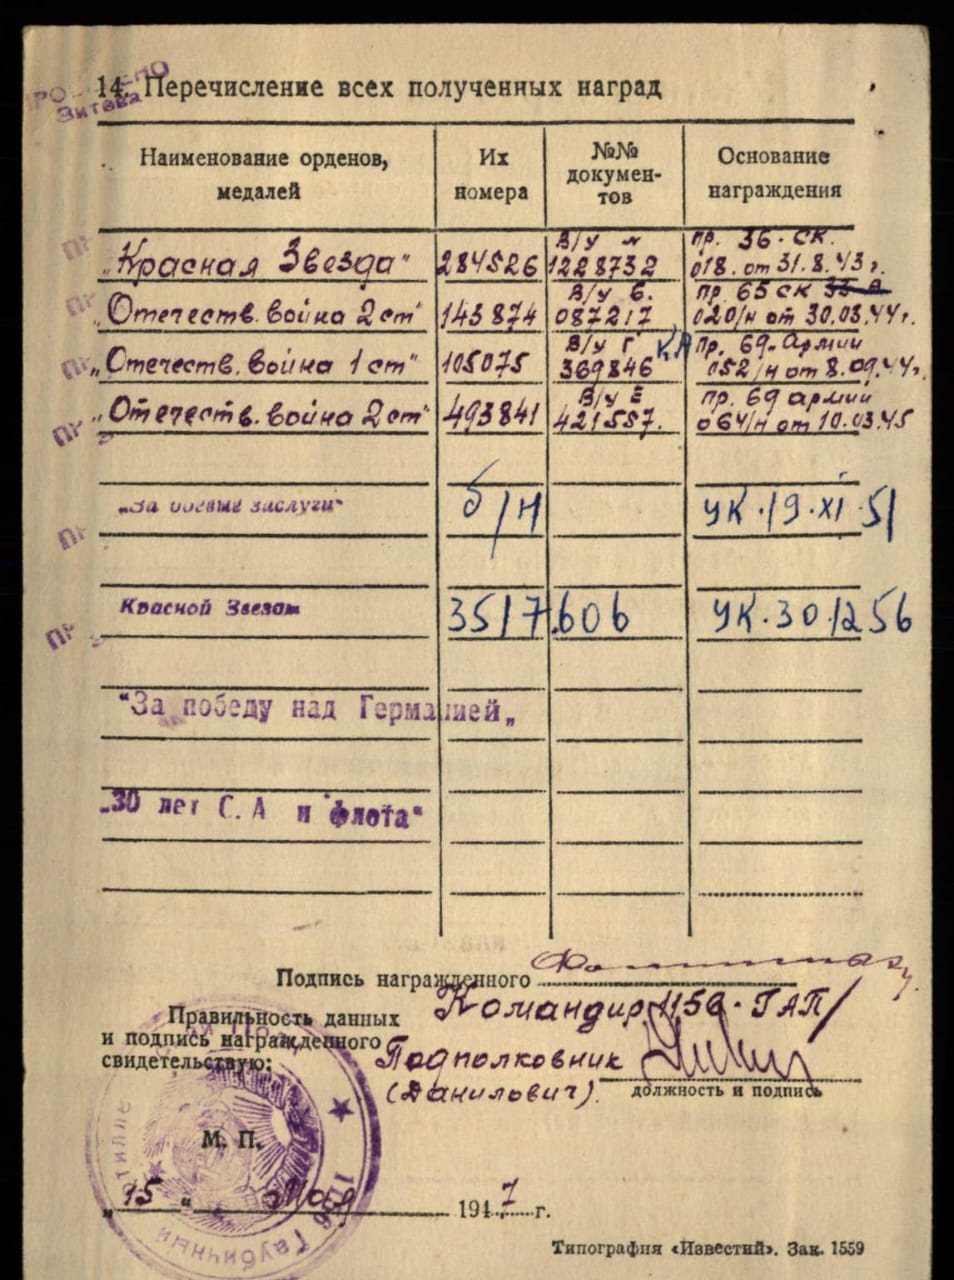 14. Перечисление всех полученных наград
Наименование орденов, медалей
Их номера
№№ документов
Основание награждения
"Красная Звезда" 284526 В/у м 1228732 пр. 36 - СК. 018. от 31.8.43 г.
"Отечеств. война 2 ст" 143874 В/у Б. 087217 пр. 65 СК 020/н от 30.03.44 г.
"Отечеств. война 1 ст" 105075 В/у Г 369846 КА пр. 69. Армии 052/н от 8.09.44 г.
"Отечеств. война 2 ст" 493841 В/у Е 421557. пр. 69 армии 064/н от 10.03.45
"За боевые заслуги" б/н УК. 19. XI. 51
Красной Звезды 3517606 УК. 30.12 56
"За победу над Германией"
"30 лет С. А и флота"
Подпись награжденного
Правильность данных
и подпись награжденного
свидетельствую:
Командир 1156 - ГАП
Подполковник
(Данилович).
должность и подпись
М. П.
"15" мая 1947 г.
Типография «Известий». Зак. 1559